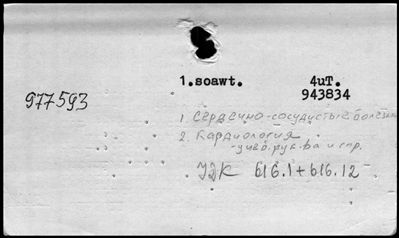 1.soawt. 4uT.
943834
977593
1. Сердечно-сосудистые болезни
2. Кардиология
-учеб.рук-ва и пр.
УДК 616.1+616.12